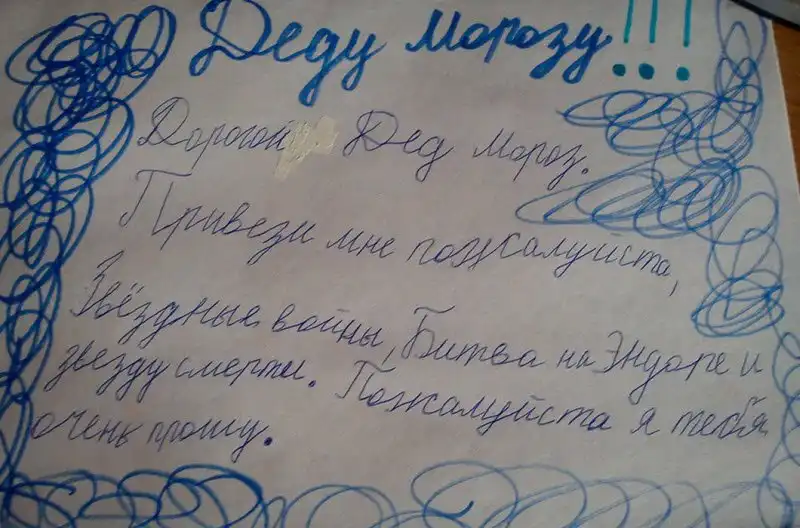 Деду Морозу!!!
Дорогой Дед Мороз.
Привези мне пожалуйста,
Звёздные войны, Битва на Эндоре и
звезду смерти. Пожалуйста я тебя
очень прошу.